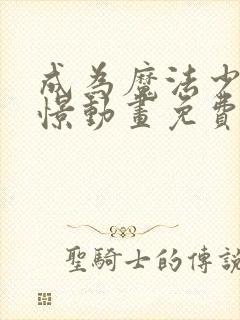 成為魔法少
憬動畫免費
聖騎士的傳說